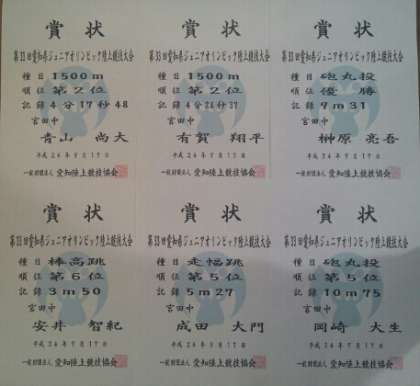 賞状
第33回愛知県ジュニアオリンピック陸上競技大会
種目 1500m
順位 第2位
記録 4分17秒48
宮田中
青山 尚大
平成24年9月17日
一般財団法人 愛知陸上競技協会
賞状
第33回愛知県ジュニアオリンピック陸上競技大会
種目 1500m
順位 第2位
宮田中
有賀 翔平
平成24年9月17日
一般財団法人 愛知陸上競技協会
賞状
第33回愛知県ジュニアオリンピック陸上競技大会
種目 砲丸投
順位 優勝
記録 9m31
宮田中
榊原 亮吾
平成24年9月17日
一般財団法人 愛知陸上競技協会
賞状
第33回愛知県ジュニアオリンピック陸上競技大会
種目 棒高跳
順位 第6位
記録 3m50
宮田中
安井 智紀
平成24年9月17日
一般財団法人 愛知陸上競技協会
賞状
第33回愛知県ジュニアオリンピック陸上競技大会
種目 走幅跳
順位 第5位
記録 5m27
宮田中
成田 大門
一般財団法人 愛知陸上競技協会
賞状
第33回愛知県ジュニアオリンピック陸上競技大会
種目 砲丸投
順位 第5位
記録 10m75
宮田中
岡崎 大生
平成24年9月17日
一般財団法人 愛知陸上競技協会